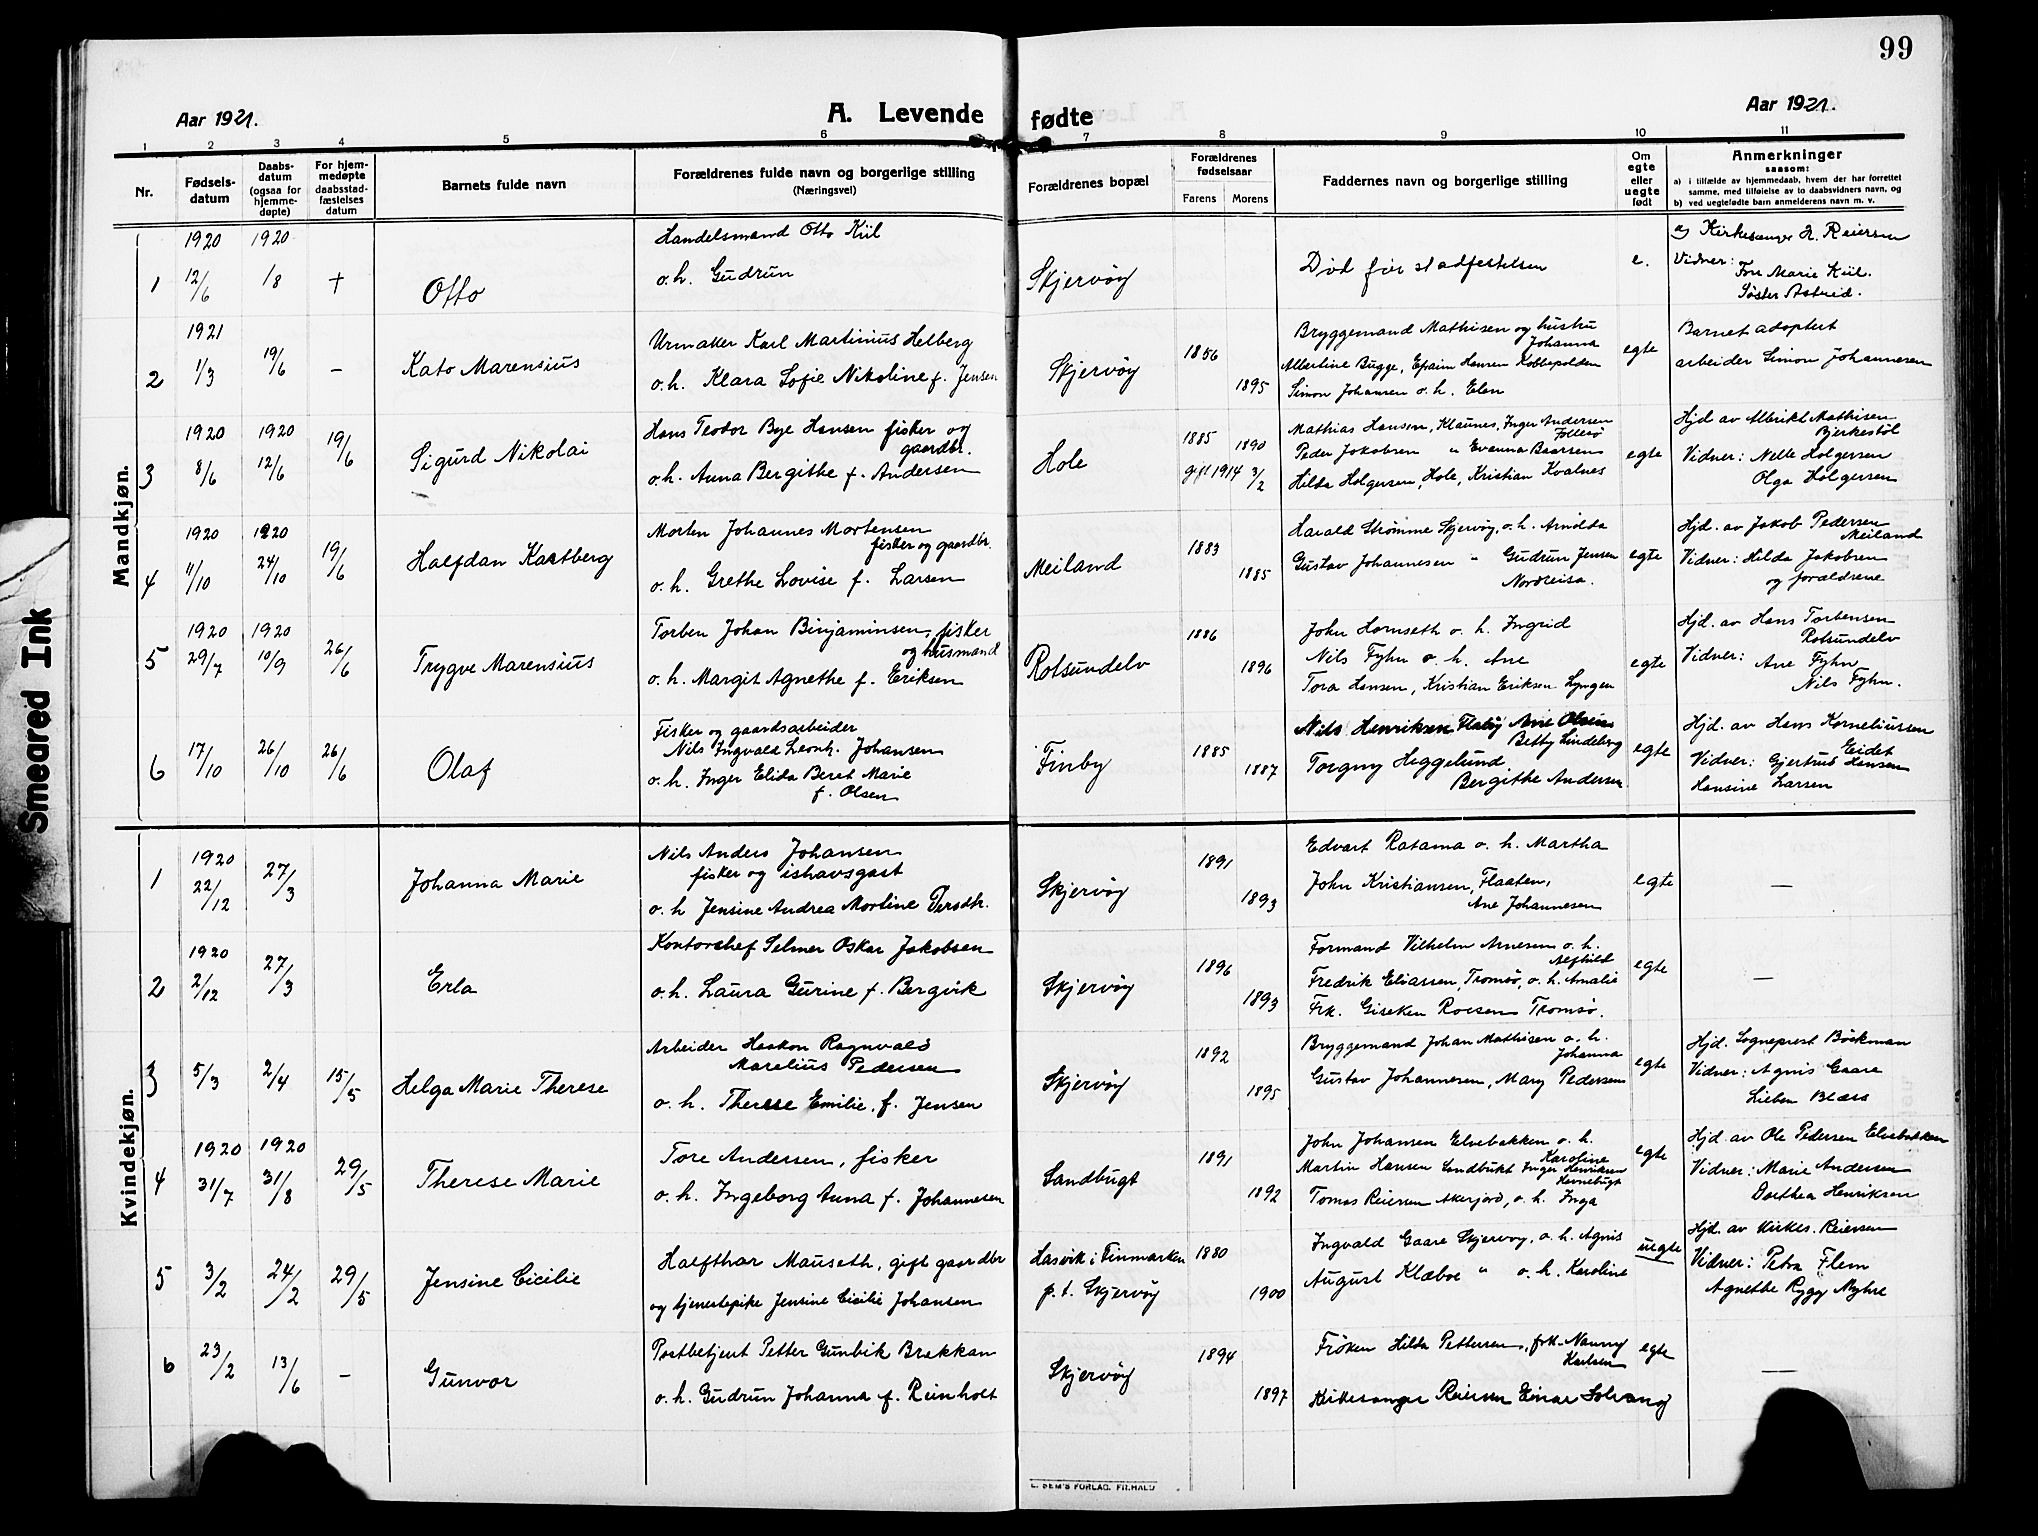 99
Aar 1921.
A. Levende fødte
Aar 1921.
1 2 3 4 5 6 7 8 9 10 11
Nr.
Fødsels-
datum
Daabs-
datum
(ogsaa for
hjemme-
døpte)
For hjem-
medøpte
daabsstad-
fæstelses
datum
Barnets fulde navn
Forældrenes fulde navn og borgerlige stilling
(Næringsvei)
Forældrenes bopæl
Forældrenes
fødselsaar
Farens Morens
Faddernes navn og borgerlige stilling
Om
egte
eller
uegte
født
Anmerkninger
saasom:
a) i tilfælde av hjemmedaab, hvem der har forrettet
samme, med tilføielse av to daabsvidners navn, og
b) ved uegtefødte barn anmelderens navn m. v.
Mandkjøn.
1920 1920 Handelsmand Otto Kiil a) Kirkesanger H. Reiersen
1 12/6 1/8 + Otto o. h. Gudrun Skjervøy Død før stadfestelsen e. Vidner: Fru Marie Kiil.
Søster Astrid.
1921 Urmaker Karl Martinius Helberg 1856 Bryggemand Mathisen og hustru Johanna Barnet adoptert
2 1/3 19/6 – Kato Marensius Skjervøy Albertine Bugge, Efraim Hansen Kobbepolden egte arbeider Simon Johannesen
o. h. Klara Sofie Nikoline f. Jensen 1895 Simon Johansen o. h. Elen
1920 1920 19/6 Hans Teodor Bye Hansen fisker og gaardbr. 1885 1890 Mathias Hansen, Klaunes, Inger Andersen Follesø Hjd. av Albrikt Mathisen Bjerkestøl
3 8/6 12/6 Sigurd Nikolai Hole Peder Jakobsen " Evanna Baarsen egte Vidner: Nelle Holgersen
o. h. Anna Bergithe f. Andersen gift 1914 3/2 Hilda Holgersen, Hole, Kristian Kvalnes Olga Holgersen
1920 1920 Morten Johannes Mortensen fisker og gaardbr. 1883 Harald Strømme Skjervøy, o. h. Arnolda Hjd. av Jakob Pedersen Meiland
4 11/10 24/10 19/6 Halfdan Kastberg Meiland Gustav Johannesen " Gudrun Jensen egte Vidner: Hilda Jakobsen
o. h. Grethe Lovise f. Larsen 1885 Nordreisa. og forældrene
1920 1920 Torben Johan Binjaminsen, fisker og husmand 1886 John Hornseth o. h. Ingrid Hjd. av Hans Torbensen Rotsundelv
5 29/7 10/9 26/6 Trygve Marensius Rotsundelv Nils Fyhn o. h. Ane egte Vidner: Ane Fyhn
o. h. Margit Agnethe f. Eriksen 1896 Tora Hansen, Kristian Eriksen Lyngen Nils Fyhn.
Fisker og gaardsarbeider Nils Henriksen Flatøy Ane Olsen Hjd. av Hans Korneliussen Eidet
6 17/10 26/10 26/6 Olaf Nils Ingvald Leonh. Johansen Finby 1885 Betty Lindeberg egte Vidner: Gjertrud Hansen
o. h. Inger Elida Beret Marie 1887 Torgny Heggelund, Hansine Larsen
f. Olsen Bergithe Andersen
Kvindekjøn.
1920 Nils Anders Johansen 1891 Edvart Ratama o. h. Martha
1 22/12 27/3 Johanna Marie fisker og ishavsgast Skjervøy John Kristiansen, Flaaten, egte –
o. h Jensine Andrea Mortine Persdtr. 1893 Ane Johannesen
1920 Kontorchef Selmer Oskar Jakobsen 1896 Formand Vilhelm Arnesen o. h. Alfhild
2 2/12 27/3 Erla Skjervøy Fredrik Eliassen, Tromsø, o. h. Amalie egte –
o. h. Laura Gurine f. Bergvik 1893 Frk. Giseken Roesen Tromsø.
Arbeider Haakon Ragnvald 1892 Bryggemand Johan Mathisen o. h. Johanna Hjd. Sogneprest Böckman
3 5/3 2/4 15/5 Helga Marie Therese Marelius Pedersen Skjervøy Gustav Johannesen, Mary Pedersen egte Vidner: Agnis Gaare
o. h. Therese Emilie, f. Jensen 1895 Lisben Blæss
1920 1920 Tore Andersen, fisker 1891 John Johansen Elvebakken o. h. Karoline Hjd av Ole Pedersen Elvebakken
4 31/7 31/8 29/5 Therese Marie Sandbugt Martin Hansen Sandbukt Inger Henriksen Havnebugt egte Vidner: Marie Andersen
o. h. Ingeborg Anna f. Johannesen 1892 Tomas Reiersen Akerfjord, o. h. Inga Dorthea Henriksen
Halfthar Mauseth, gift gaardbr Hasvik i Finmarken 1880 Ingvald Gaare Skjervøy, o. h. Agnis uegte Hjd. av Kirkes. Reiersen
5 3/2 24/2 29/5 Jensine Cicilie August Klæboe " o. h. Karoline Vidner: Petra Flem
og tjenestepike Jensine Cicilie Johansen p. t. Skjervøy 1900 Agnethe Rygg Myhre
Postbetjent Petter Gunbik Brækkan 1894 Frøken Hilda Pettersen, frk. Nanny Karlsen
6 23/2 13/6 – Gunvor Skjervøy egte –
o. h. Gudrun Johanna f. Reinholt 1897 Kirkesanger Reiersen Einar Solvang
E. SEM'S FORLAG. FR.HALD
Smeared Ink